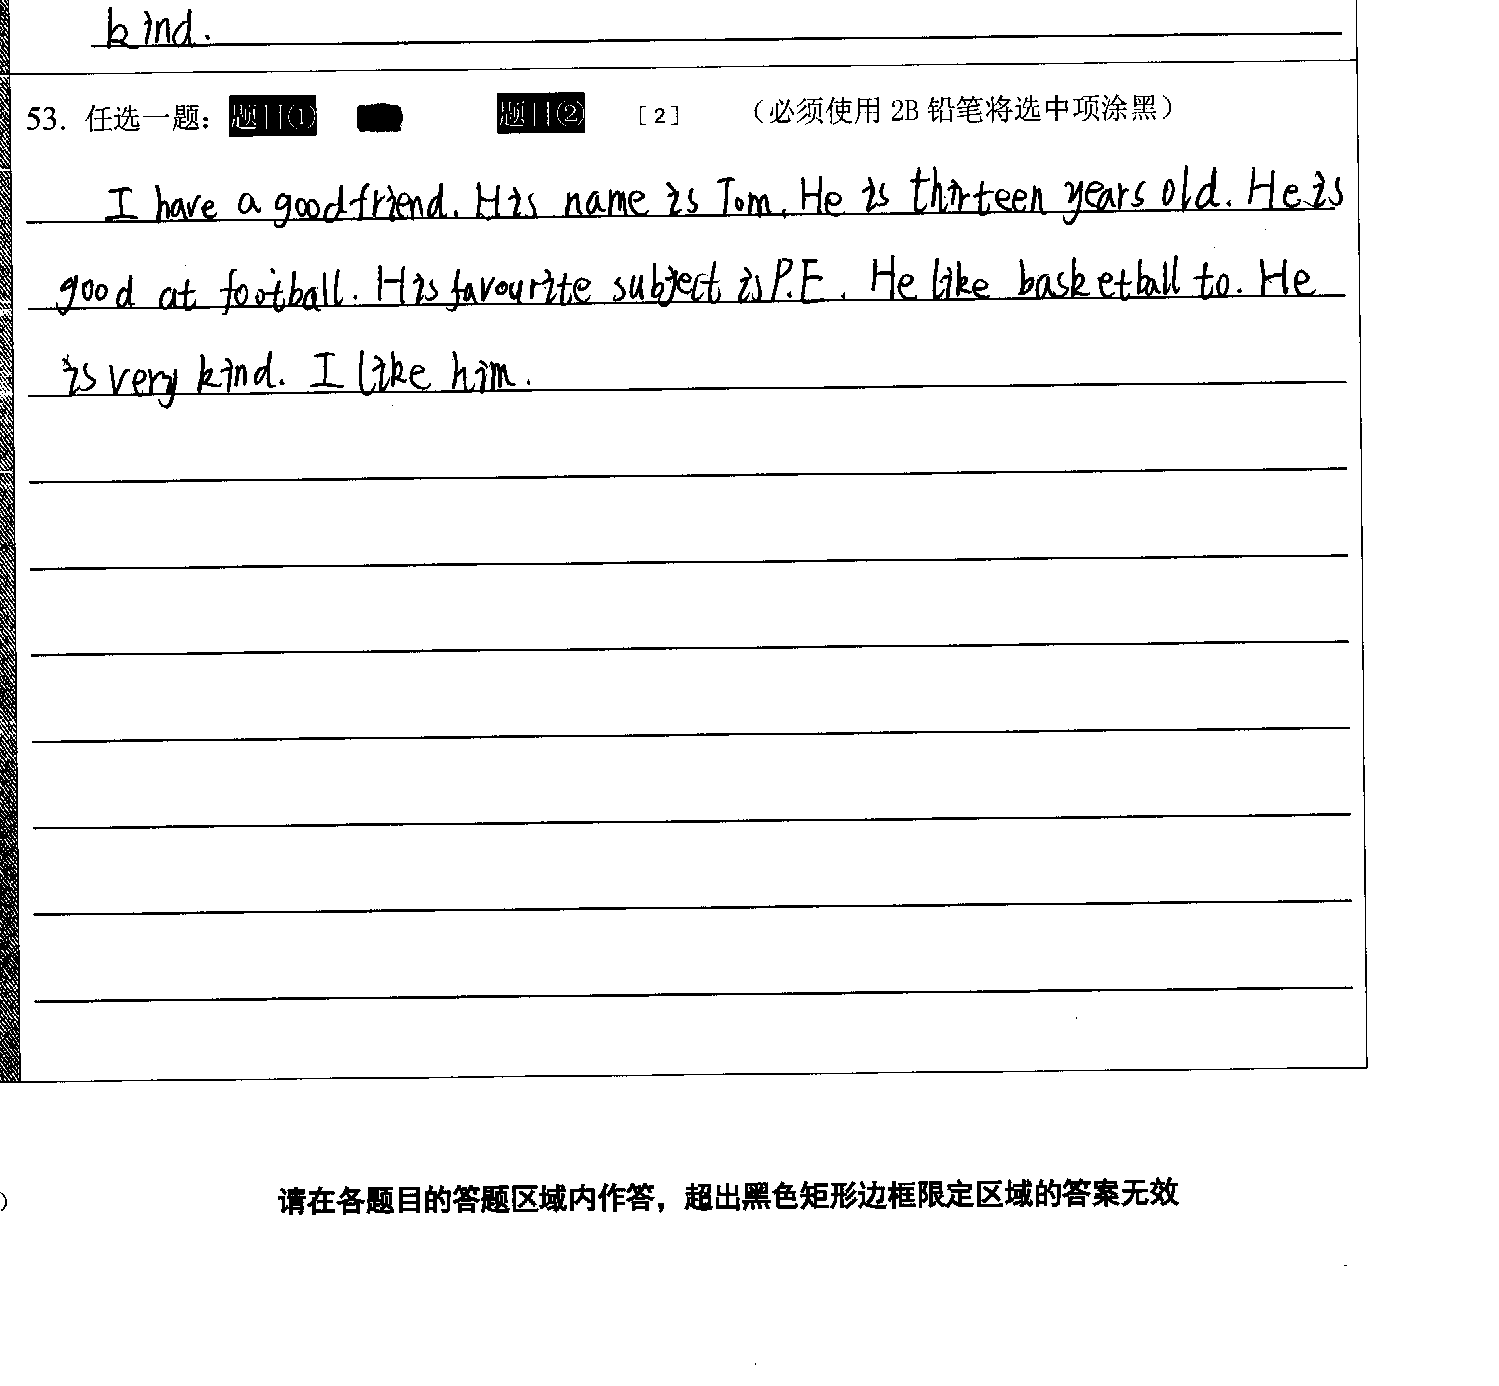 kind.
53. 任选一题： 题目① 题目② [2] （必须使用 2B 铅笔将选中项涂黑）
I have a good friend. His name is Tom. He is thirteen years old. He is
good at football. His favourite subject is P.E. He like basketball to. He
is very kind. I like him.
)
请在各题目的答题区域内作答，超出黑色矩形边框限定区域的答案无效